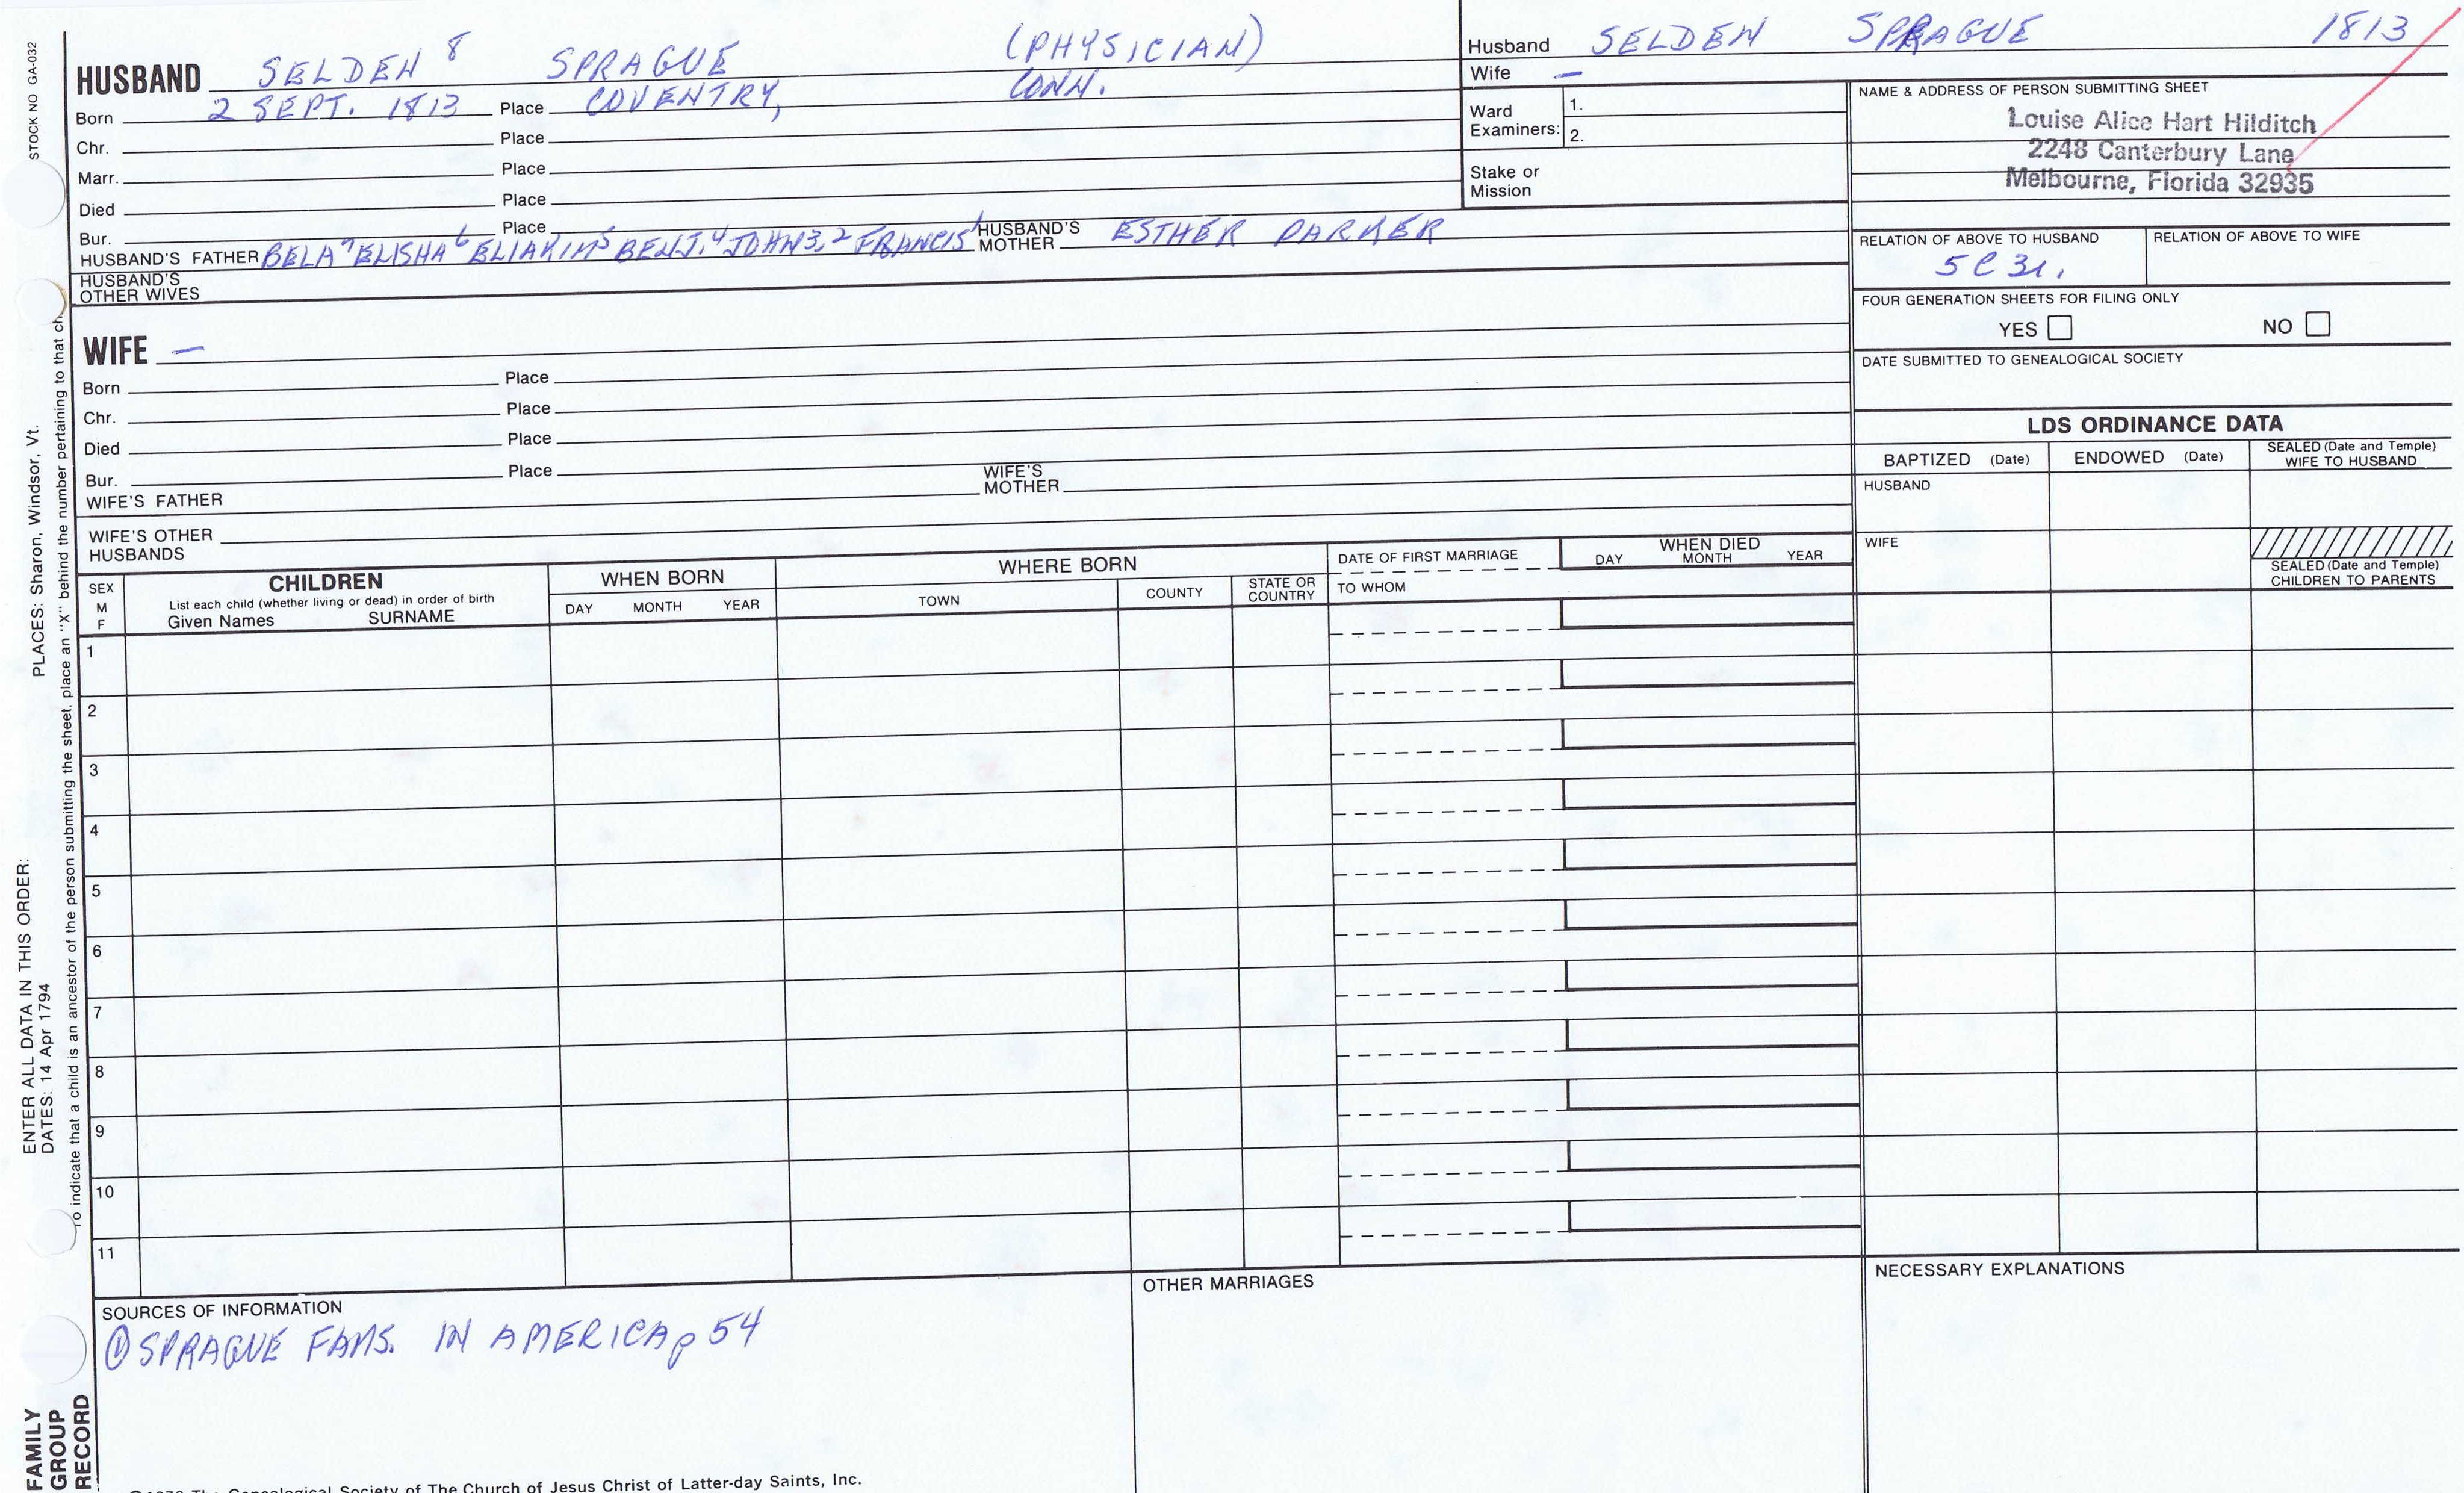 STOCK NO GA-032
HUSBAND SELDEN 8 SPRAGUE (PHYSICIAN)
Born 2 SEPT. 1813 Place COVENTRY, CONN.
Chr. Place
Marr. Place
Died Place
Bur. Place
HUSBAND'S FATHER BELA 7 ELISHA 6 ELIAKIM 5 BENJ. 4 JOHN 3, 2 FRANCIS 1 HUSBAND'S MOTHER ESTHER PARKER
HUSBAND'S
OTHER WIVES
WIFE —
Born Place
Chr. Place
Died Place
Bur. Place
WIFE'S FATHER WIFE'S MOTHER
WIFE'S OTHER
HUSBANDS
Husband SELDEN SPRAGUE 1813
Wife —
Ward
Examiners: 1.
2.
Stake or
Mission
NAME & ADDRESS OF PERSON SUBMITTING SHEET
Louise Alice Hart Hilditch
2248 Canterbury Lane
Melbourne, Florida 32935
RELATION OF ABOVE TO HUSBAND RELATION OF ABOVE TO WIFE
FOUR GENERATION SHEETS FOR FILING ONLY
YES NO
DATE SUBMITTED TO GENEALOGICAL SOCIETY
LDS ORDINANCE DATA
BAPTIZED (Date) ENDOWED (Date) SEALED (Date and Temple)
WIFE TO HUSBAND
HUSBAND
WIFE
SEALED (Date and Temple)
CHILDREN TO PARENTS
SEX
M
F
CHILDREN
List each child (whether living or dead) in order of birth
Given Names SURNAME
WHEN BORN
DAY MONTH YEAR
WHERE BORN
TOWN COUNTY STATE OR
COUNTRY
DATE OF FIRST MARRIAGE
TO WHOM
WHEN DIED
DAY MONTH YEAR
1
2
3
4
5
6
7
8
9
10
11
SOURCES OF INFORMATION
① SPRAGUE FAMS. IN AMERICA p 54
OTHER MARRIAGES
NECESSARY EXPLANATIONS
ENTER ALL DATA IN THIS ORDER:
DATES: 14 Apr 1794 PLACES: Sharon, Windsor, Vt.
To indicate that a child is an ancestor of the person submitting the sheet, place an "X" behind the number pertaining to that
FAMILY
GROUP
RECORD
Society of The Church of Jesus Christ of Latter-day Saints, Inc.